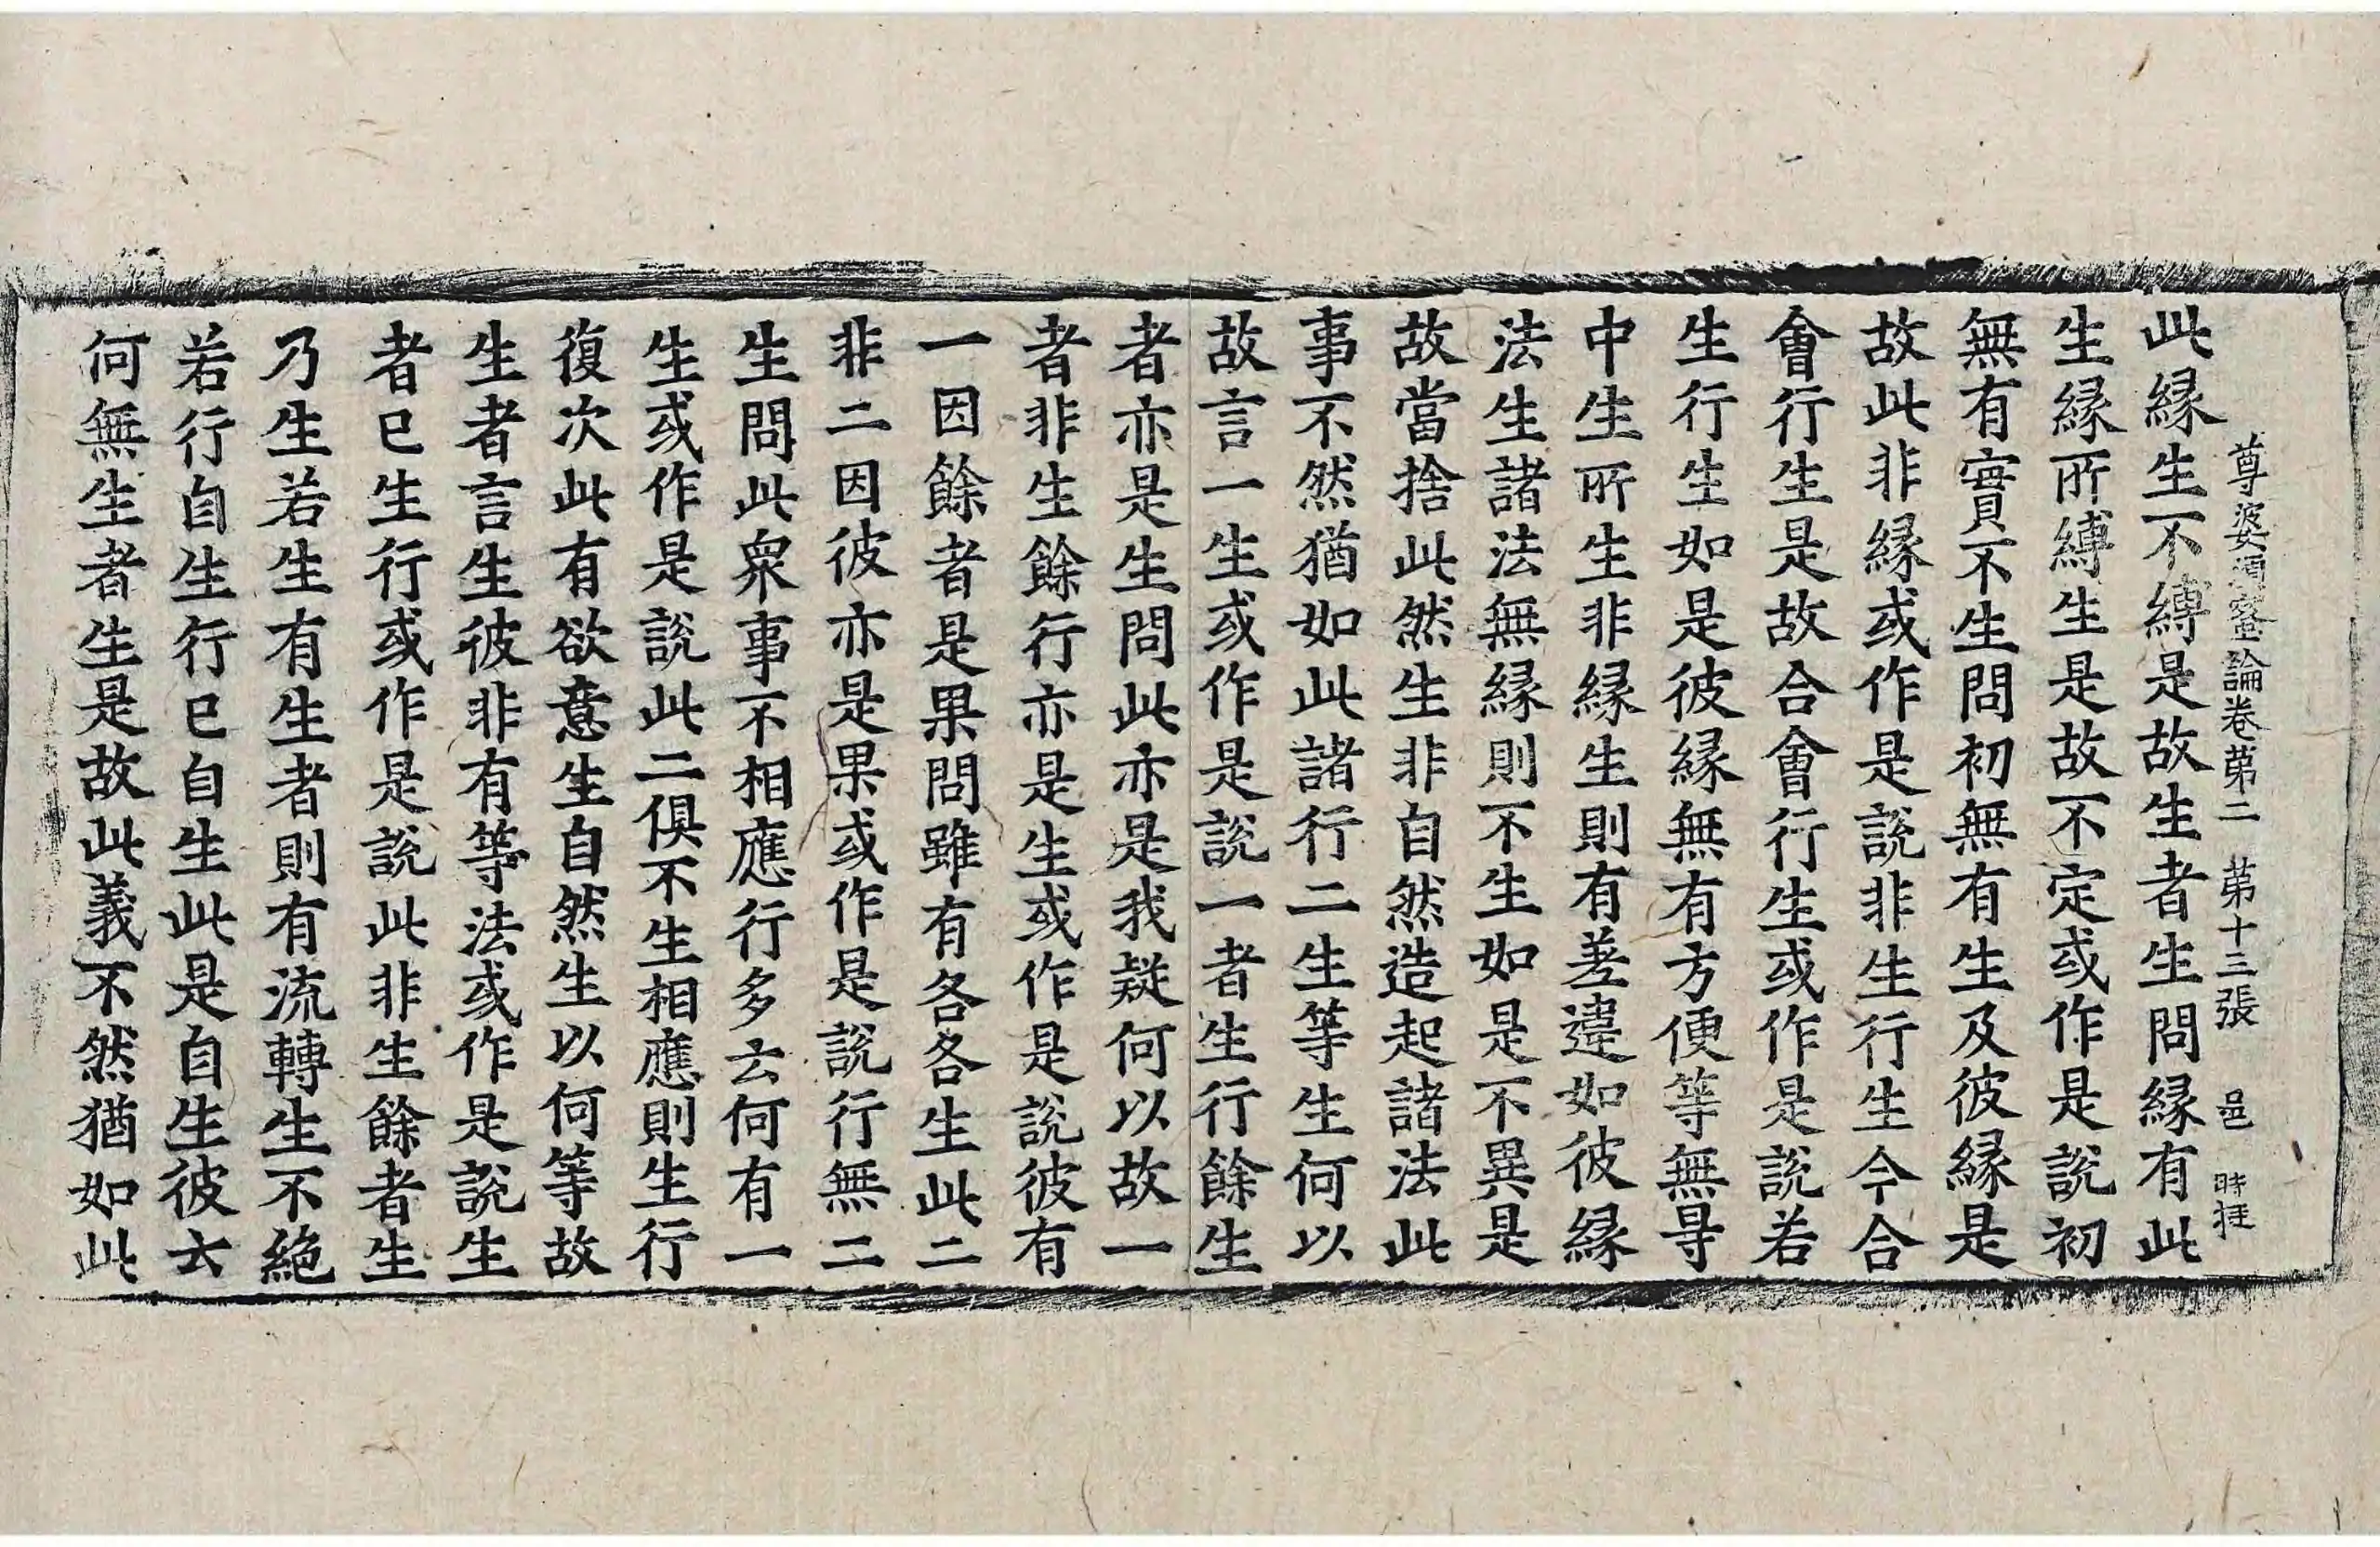 尊婆須蜜論卷第二　第十三張　邑　時㨔
此縁生不縛是故生者生問縁有此
生縁所縛生是故不定或作是說初
無有實不生問初無有生及彼縁是
故此非縁或作是說非生行生今合
會行生是故合會行生或作是說若
生行生如是彼縁無有方便等無㝵
中生所生非縁生則有差違如彼縁
法生諸法無縁則不生如是不異是
故當捨此然生非自然造起諸法此
事不然猶如此諸行二生等生何以
故言一生或作是說一者生行餘生
者亦是生問此亦是我疑何以故一
者非生餘行亦是生或作是說彼有
一因餘者是果問雖有各各生此二
非二因彼亦是果或作是說行無二
生問此衆事不相應行多云何有一
生或作是說此二俱不生相應則生行
復次此有欲意生自然生以何等故
生者言生彼非有等法或作是說生
者已生行或作是說此非生餘者生
乃生若生有生者則有流轉生不絶
若行自生行已自生此是自生彼云
何無生者生是故此義不然猶如此